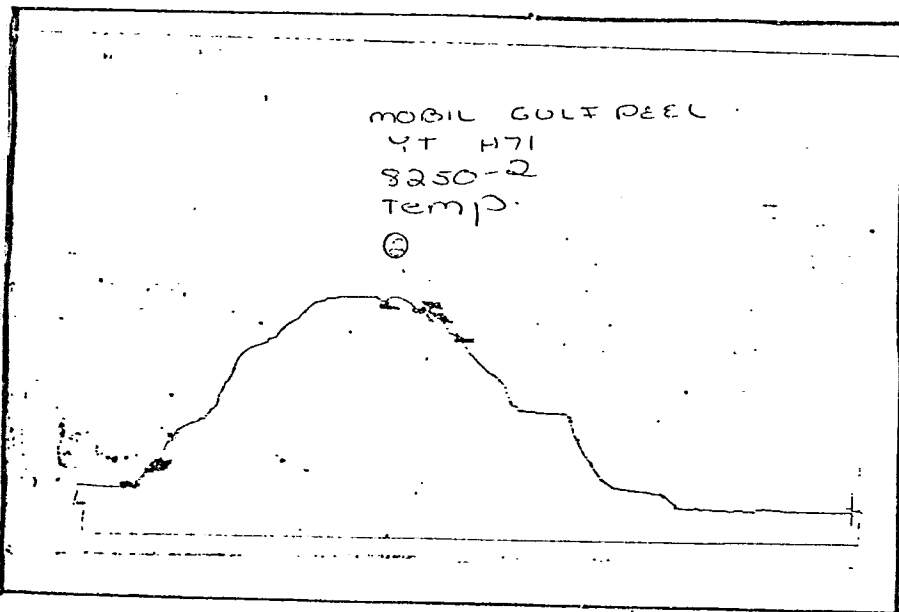 MOBIL GULF PEEL
YT H71
8250-2
Temp.